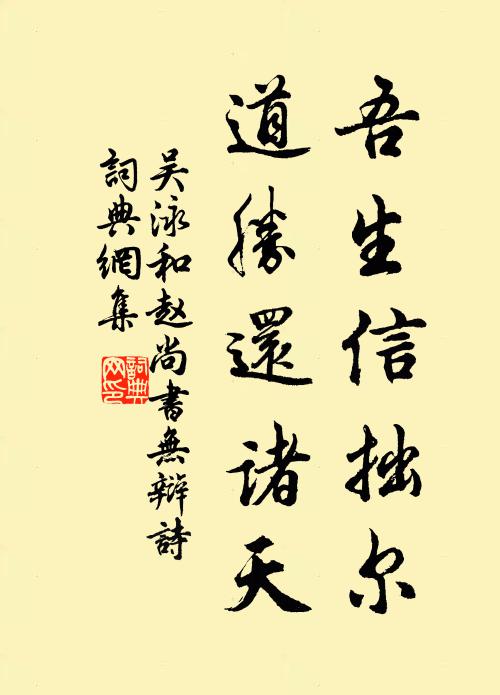 吾生信拙尔
道勝還诸天
吴泳和赵尚書無辯詩
詞典網集
詞典
网印